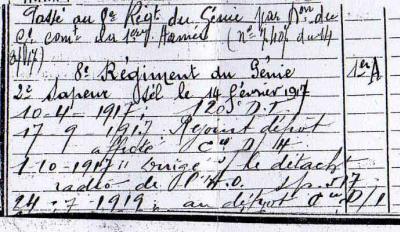 Passé au 8e Régt du Génie par Don du
Gl comt la 1ere Armée (n° 7401 du 14
2/17)
8e Régiment du Génie
1er A
2e Sapeur Sél le 14 février 1917
10-4-1917. D.T.
17-9 1917 Rejoint dépôt
affecté Cie D/14
1-10-1917 Dirigé s/ le détacht
radio de l'A.O. s.p. 517
24-7-1919: au dépôt Cie D/1